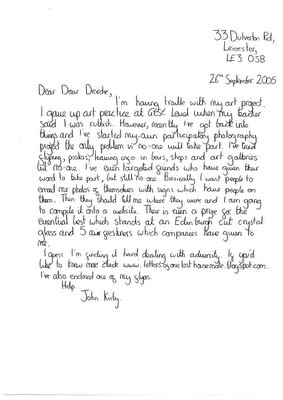 33 Dulverton Rd,
Leicester,
LE3 0SB
26th September 2005
Dear Dear Deidre,
I'm having trouble with my art project.
I gave up art practice at GCSE Level when my teacher
said I was rubbish. However, recently I've got back into
things and I've started my own participatory photography
project the only problem is no-one will take part. I've tried
flyering, posters, leaving info in bars, shops and art galleries
but no-one. I've even targeted friends who have given their
word to take part, but still no one. Basically I want people to
email me photos of themselves with signs which have people on
them. Then they should tell me where they were and I am going
to compile it onto a website. There is even a prize for the
eventual best which stands at an Edinburgh cut crystal
glass and 5 air fresheners which companies have given to
me.
I guess I'm finding it hard dealing with adversity. If you'd
like to know more check www.lettersofonelosthousemate.blogspot.com.
I've also enclosed one of my flyers.
Help.
John Kirby.